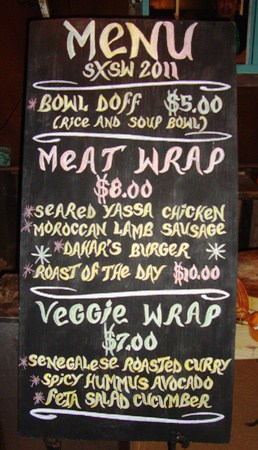 MENU
SXSW 2011
*BOWL DOFF $5.00
(RICE AND SOUP BOWL)
MEAT WRAP
$8.00
*SEARED YASSA CHICKEN
*MOROCCAN LAMB SAUSAGE
*DAKAR'S BURGER*
*ROAST OF THE DAY $10.00
VEGGIE WRAP
$7.00
*SENEGALESE ROASTED CURRY
*SPICY HUMMUS AVOCADO
*FETA SALAD CUCUMBER